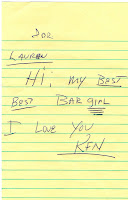 DOR
LAUREN
Hi, my BEST
BEST BAR GIRL
I LOVE YOU
KEN